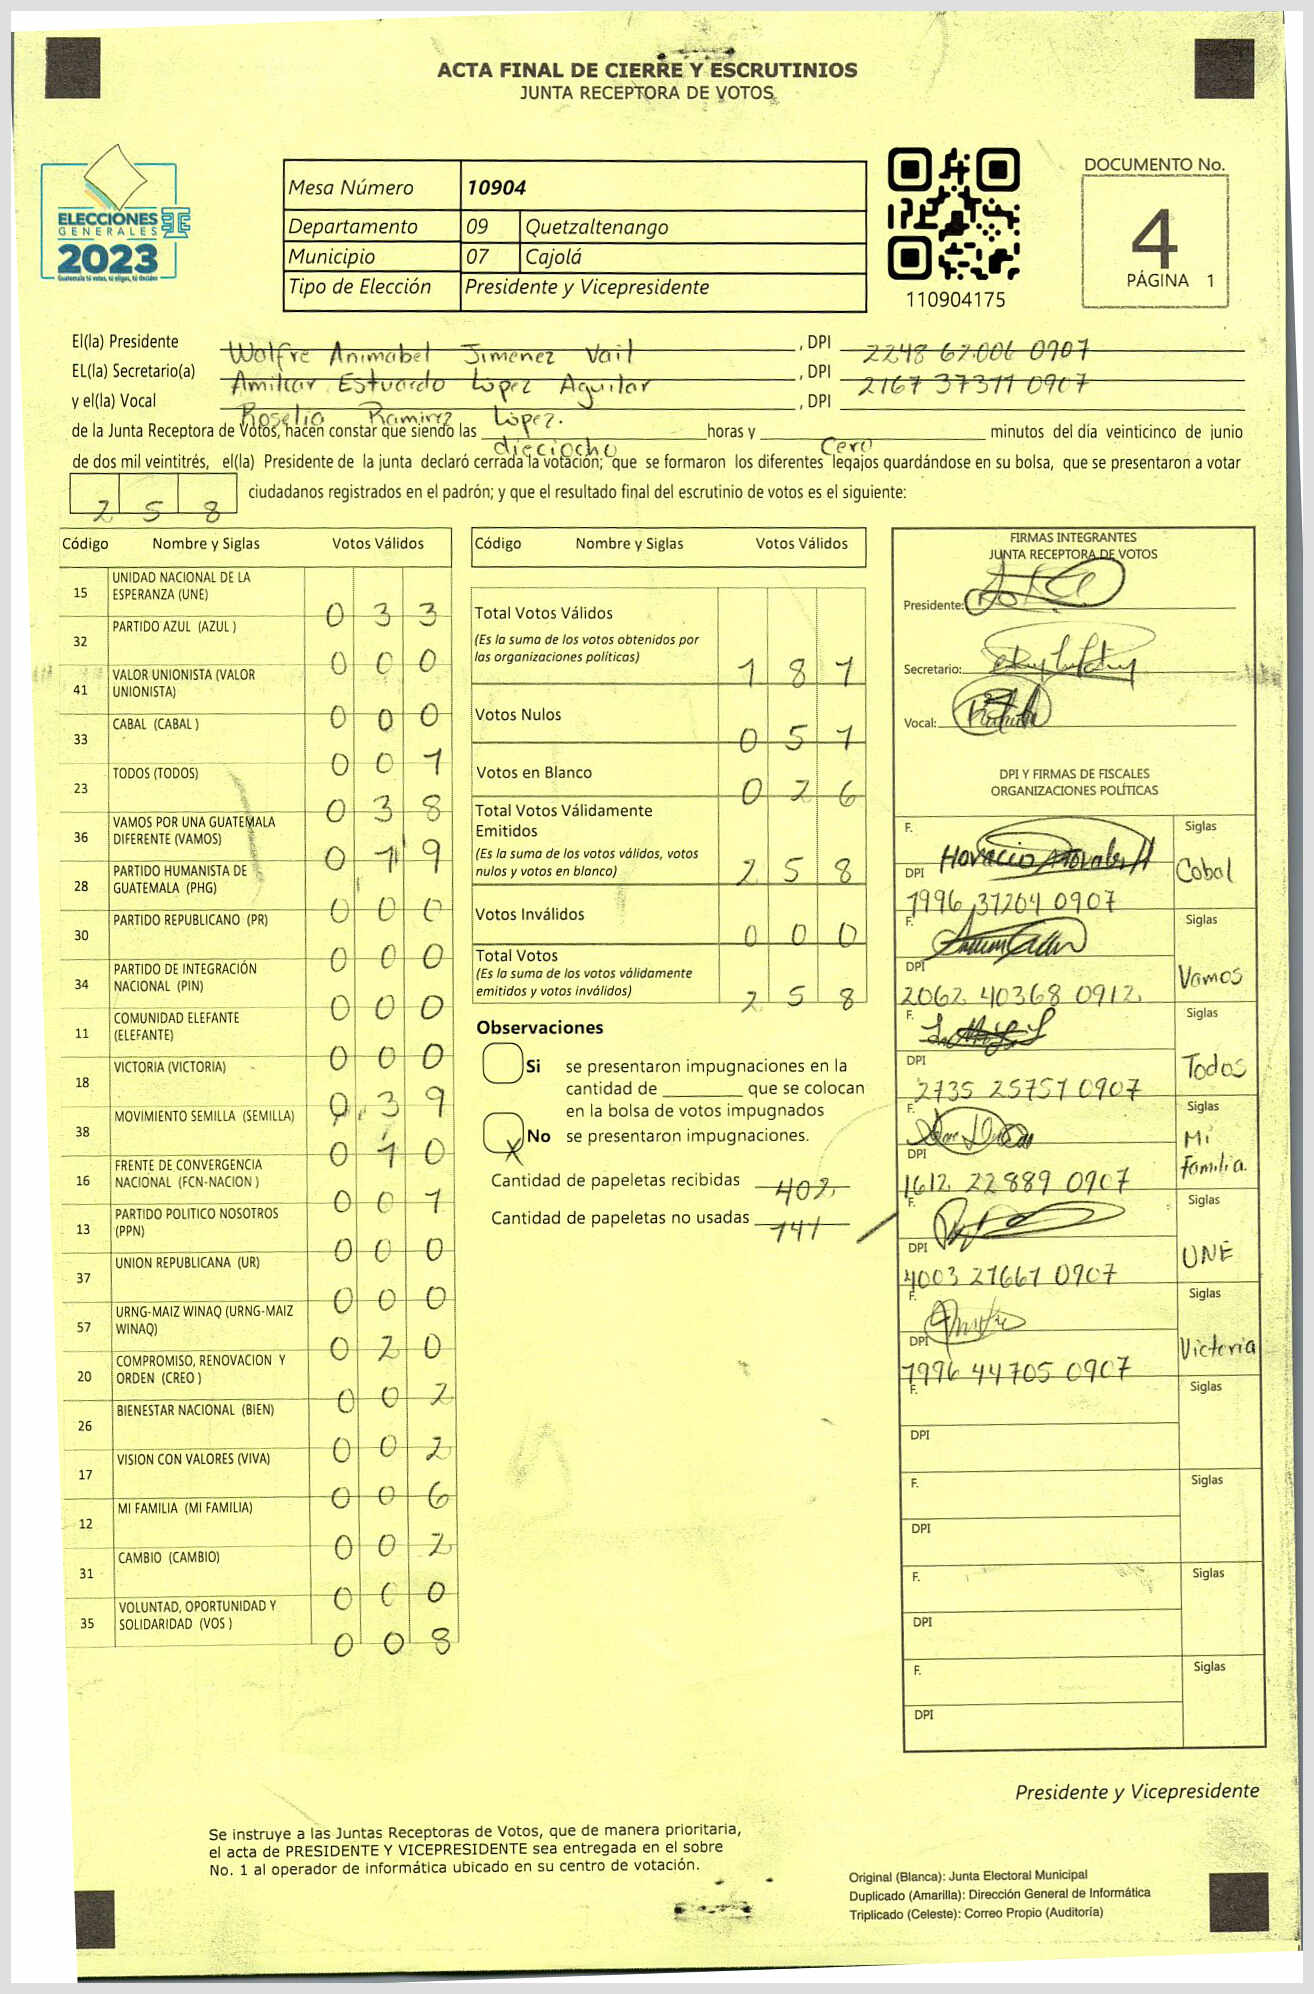 ACTA FINAL DE CIERRE Y ESCRUTINIOS
JUNTA RECEPTORA DE VOTOS
ELECCIONES
GENERALES
2023
Guatemala tú votas, tú eliges, tú decides
Mesa Número 10904
Departamento 09 Quetzaltenango
Municipio 07 Cajolá
Tipo de Elección Presidente y Vicepresidente
110904175
DOCUMENTO No.
4
PÁGINA 1
El(la) Presidente Wolfre Animabel Jimenez Vail, DPI 2248 62006 0907
EL(la) Secretario(a) Amilcar Estuardo López Aguilar, DPI 2167 37311 0907
y el(la) Vocal Roselia Ramirez López., DPI
de la Junta Receptora de Votos, hacen constar que siendo las dieciocho horas y Cero minutos del día veinticinco de junio
de dos mil veintitrés, el(la) Presidente de la junta declaró cerrada la votación; que se formaron los diferentes legajos guardándose en su bolsa, que se presentaron a votar
258 ciudadanos registrados en el padrón; y que el resultado final del escrutinio de votos es el siguiente:
Código Nombre y Siglas Votos Válidos
15 UNIDAD NACIONAL DE LA ESPERANZA (UNE) 0 3 3
32 PARTIDO AZUL (AZUL ) 0 0 0
41 VALOR UNIONISTA (VALOR UNIONISTA) 0 0 0
33 CABAL (CABAL ) 0 0 1
23 TODOS (TODOS) 0 3 8
36 VAMOS POR UNA GUATEMALA DIFERENTE (VAMOS) 0 1 9
28 PARTIDO HUMANISTA DE GUATEMALA (PHG) 0 0 0
30 PARTIDO REPUBLICANO (PR) 0 0 0
34 PARTIDO DE INTEGRACIÓN NACIONAL (PIN) 0 0 0
11 COMUNIDAD ELEFANTE (ELEFANTE) 0 0 0
18 VICTORIA (VICTORIA) 0 3 9
38 MOVIMIENTO SEMILLA (SEMILLA) 0 1 0
16 FRENTE DE CONVERGENCIA NACIONAL (FCN-NACION ) 0 0 1
13 PARTIDO POLITICO NOSOTROS (PPN) 0 0 0
37 UNION REPUBLICANA (UR) 0 0 0
57 URNG-MAIZ WINAQ (URNG-MAIZ WINAQ) 0 2 0
20 COMPROMISO, RENOVACION Y ORDEN (CREO ) 0 0 2
26 BIENESTAR NACIONAL (BIEN) 0 0 2
17 VISION CON VALORES (VIVA) 0 0 6
12 MI FAMILIA (MI FAMILIA) 0 0 2
31 CAMBIO (CAMBIO) 0 0 0
35 VOLUNTAD, OPORTUNIDAD Y SOLIDARIDAD (VOS ) 0 0 8
Código Nombre y Siglas Votos Válidos
Total Votos Válidos 1 8 1
(Es la suma de los votos obtenidos por
las organizaciones políticas)
Votos Nulos 0 5 1
Votos en Blanco 0 2 6
Total Votos Válidamente
Emitidos
(Es la suma de los votos válidos, votos
nulos y votos en blanco) 2 5 8
Votos Inválidos 0 0 0
Total Votos
(Es la suma de los votos válidamente
emitidos y votos inválidos) 2 5 8
Observaciones
Si se presentaron impugnaciones en la
cantidad de ________ que se colocan
en la bolsa de votos impugnados
X No se presentaron impugnaciones.
Cantidad de papeletas recibidas 402
Cantidad de papeletas no usadas 141
FIRMAS INTEGRANTES
JUNTA RECEPTORA DE VOTOS
Presidente:
Secretario:
Vocal:
DPI Y FIRMAS DE FISCALES
ORGANIZACIONES POLÍTICAS
F. Horacio Morales Siglas
DPI 1996 37204 0907 Cabal
F. Siglas
DPI 2062 40368 0912 Vamos
F. Siglas
DPI 2735 25757 0907 Todos
F. Siglas
DPI 1612 22889 0907 Mi Familia.
F. Siglas
DPI 4003 27661 0907 UNE
F. Siglas
DPI 1996 44705 0907 Victoria
F. Siglas
DPI
F. Siglas
DPI
F. Siglas
DPI
F. Siglas
DPI
Presidente y Vicepresidente
Se instruye a las Juntas Receptoras de Votos, que de manera prioritaria,
el acta de PRESIDENTE Y VICEPRESIDENTE sea entregada en el sobre
No. 1 al operador de informática ubicado en su centro de votación.
Original (Blanca): Junta Electoral Municipal
Duplicado (Amarilla): Dirección General de Informática
Triplicado (Celeste): Correo Propio (Auditoría)